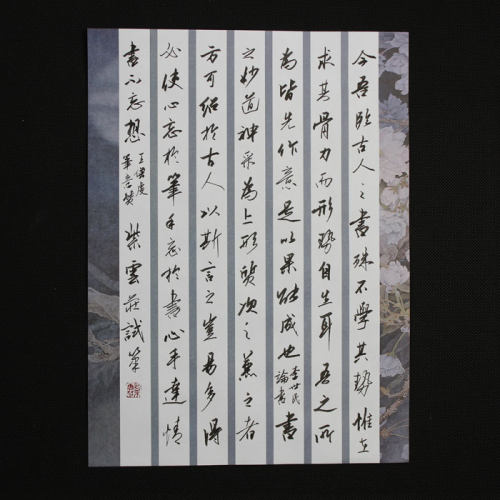 今吾临古人之書殊不學其勢惟在
求其骨力而形勢自生耳吾之所
為皆先作意是以果能成也李世民論書書
之妙道神采為上形質次之兼之者
方可紹於古人以斯言之豈易多得
必使心忘於筆手忘於書心手達情
書不忘想王僧虔筆意贊紫雲莊試筆